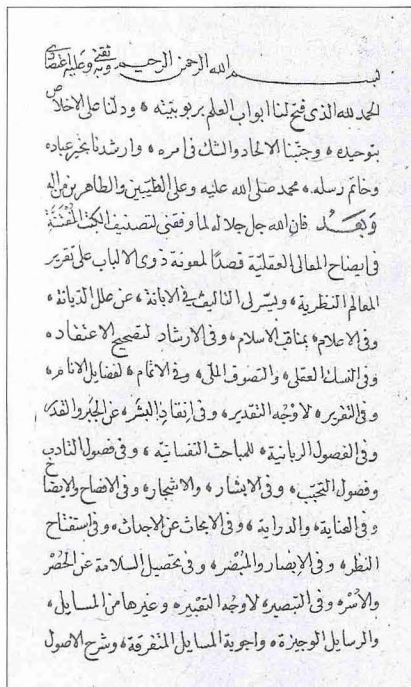 بسم الله الرحمن الرحيم وبه ثقتي وعليه اعتمادي
الحمد لله الذى فتح لنا ابواب العلم بربوبيته ، ودلنا على الاخلاص
بتوحيده ، وجنبنا الالحاد والشك فى امره ، وارشدنا بخير عباده
وخاتم رسله ، محمد صلى الله عليه وعلى الطيبين والطاهرين من اله
وبعد فان الله جل جلاله لما وفقنى لتصنيف الكتب المفتنة
فى ايضاح المعانى العقلية قصدًا لمعونة ذوى الالباب على تقرير
المعالم النظرية ، ويسر لى التاليف فى الابانة ، عن علل الديانة ،
وفى الاعلام ، بمناقب الاسلام ، وفى الارشاد لتصحيح الاعتقاد ،
وفى النسك العقلى ، والتصوف الملى ، وفى الاتمام ، لفضايل الانام ،
وفى التقرير ، لاوجه التقدير ، وفى انقاذ البشر ، عن الجبر والقدر
وفى الفصول الربانية ، للمباحث النفسانية ، وفى فصول التادب
وفصول التحبب ، وفى الابشار ، والاشجار ، وفى الافصاح والايضاح
وفى العناية ، والدراية ، وفى الابحاث عن الاحداث ، وفى استفتاح
النظر ، وفى الابصار والمبصر ، وفى تحصيل السلامة عن الحصر
والاسر ، وفى التبصير ، لاوجه التعبير ، وغيرها من المسايل ،
والرسايل الوجيزة ، واجوبة المسايل المتفرقة ، وشرح الاصول